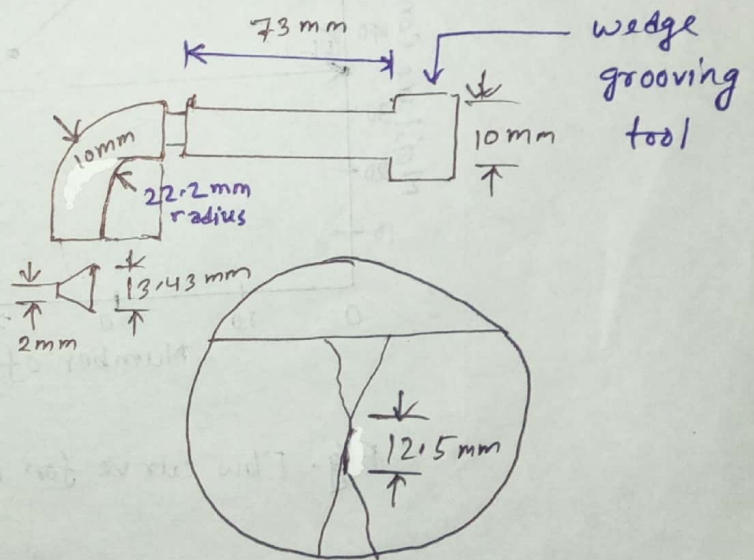 73 mm
wedge
grooving
tool
10mm
10mm
22.2mm
radius
13.43 mm
2mm
12.5mm